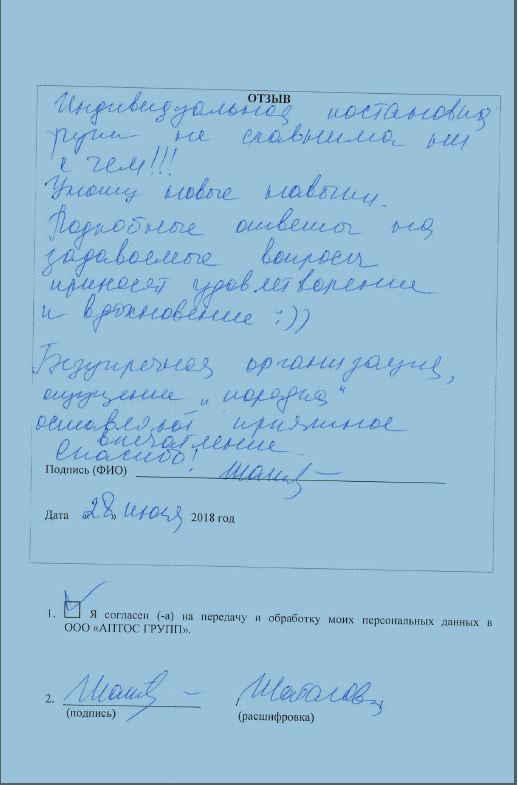 ОТЗЫВ
Индивидуальная постановка
руки не сравнима ни
с чем!!!
Уношу новые навыки.
Подробные ответы на
задаваемые вопросы
приносят удовлетворение
и вдохновение :))
Безупречная организация,
ощущение „порядка“
оставляют приятное
впечатление
Спасибо!
Подпись (ФИО)
Дата «28» июля 2018 год
1. Я согласен (-а) на передачу и обработку моих персональных данных в
ООО «АПТОС ГРУПП».
2.
(подпись) (расшифровка)